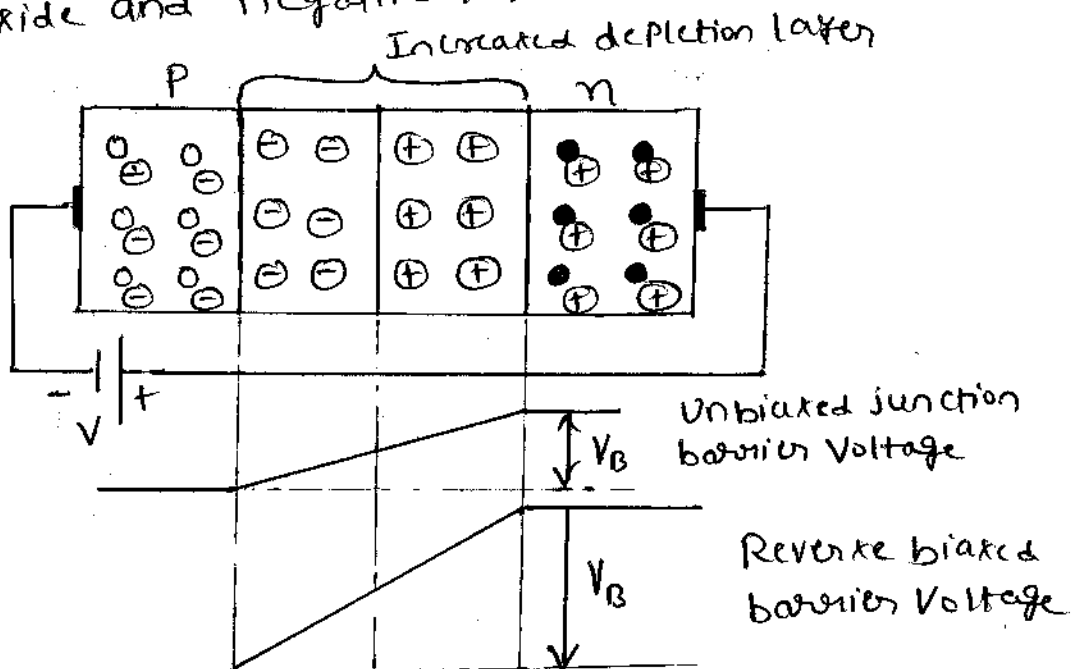 side and negative
Increased depletion layer
P
n
- +
V
Unbiased junction
V_B barrier Voltage
Reverse biased
V_B barrier Voltage